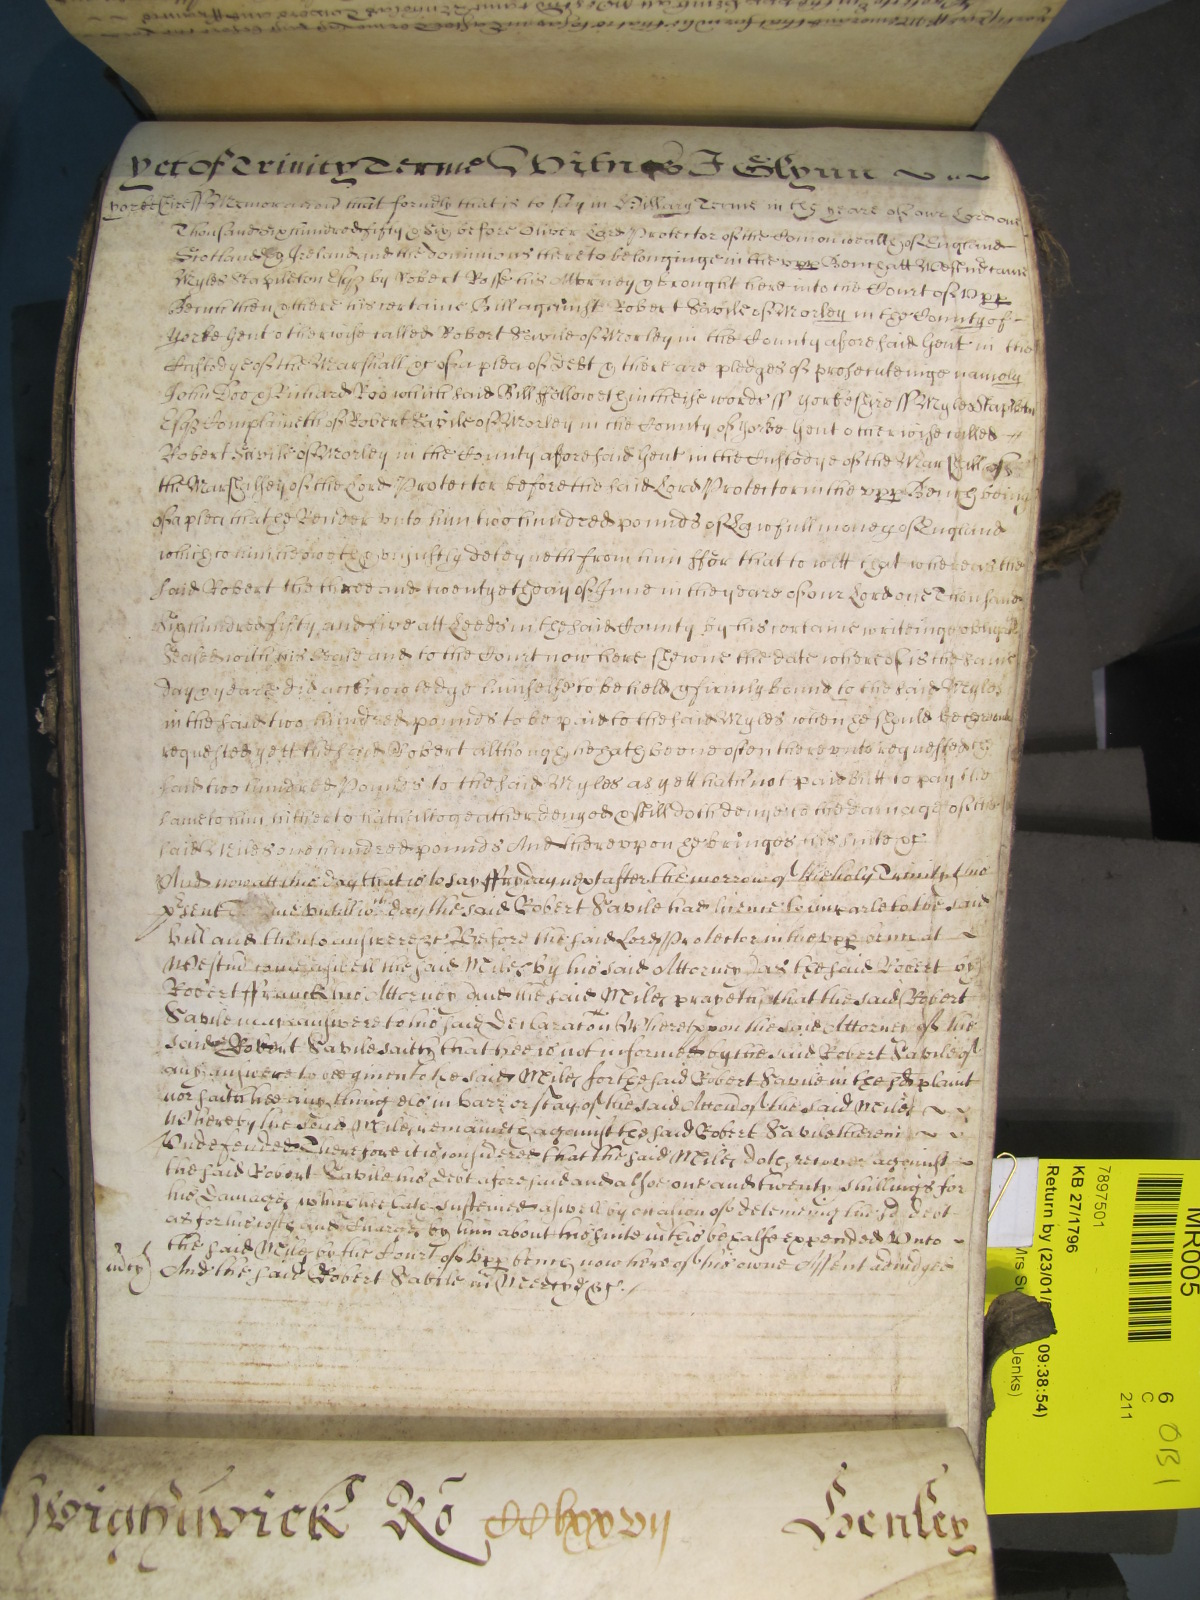 yet of Trinity Terme Witnes J Glynn
Yorkesheire ss Memorandum that formerly that is to say in Hillary Terme in the yeare of our Lord one
Thousand six hundred fifty & six before Oliver Lord Protector of the Comonwealth of England
Scotland & Ireland and the dominions thereto belonginge in the vpp Bench att Westm came
Myles Stapleton Esqr by Robert Rosse his Attorney & brought here into the Court of vpp
Bench then & there his certaine Bill against Robert Savile of Morley in the County of
Yorke Gent otherwise called Robert Savile of Morley in the County aforesaid Gent in the
Custodye of the Marshall &c of a plea of Debt & there are pledges of prosecuteinge namely
John Doo & Richard Roo which said Bill ffolloweth in theise words ss Yorkeshyre ss Myles Stapleton
Esqr Complaineth of Robert Savile of Morley in the County of Yorke Gent otherwise called
Robert Savile of Morley in the County aforesaid Gent in the Custodye of the Marshall of
the Marshalsey of the Lord Protector before the said Lord Protector in the vpp Bench being
of a plea that he Render vnto him two hundred pounds of Lawfull money of England
which to him he oweth & vniustly deteyneth from him ffor that to witt that whereas the
said Robert the three and twentyeth day of June in the yeare of our Lord one Thousand
six hundred fifty and five att Leeds in the said County by his certaine writeinge obligat
Sealed with his Seale and to the Court now here shewne the date whereof is the same
day & yeare did acknowledge himselfe to be held & firmly bound to the said Myles
in the said two hundred pounds to be paid to the said Myles when he should be therevnto
requested yett the said Robert although he hath beene often therevnto requested the
said two hundred Pounds to the said Myles as yett hath not paid butt to pay the
same to him hitherto hath altogeather denyed & still doth denye to the damage of the
said Miles one hundred pounds And therevpon he bringes his suite &c
And now att this day that is to say ffryday next after the morrow of the holy Trinity this
psent Terme vntill wch day the said Robert Savile had licence to imparle to the said
bill and then to answere &c Before the said Lord Protector in the vpp bench at
Westm came aswell the said Miles by his said Attorney as the said Robert by
Robert ffranck his Attorney And the said Miles prayeth that the said Robert
Savile may answere to his said Declaracon Wherevpon the said Attorney of the
said Robert Savile saith that hee is not informed by the said Robert Savile of
any answere to bee given to the said Miles for the said Robert Savile in the sd plaint
nor saith hee any thing els in barr or stay of the said Accon of the said Miles
Whereby the said Miles remaineth against the said Robert Savile therein
Vndefended Therefore it is considered that the said Miles doe recover against
the said Robert Savile his debt aforesaid and alsoe one and twenty shillings for
his Damages which hee hath susteined aswell by occasion of deteineing the sd debt
as for his costs and charges by him about his suite in this behalfe expended Vnto
the said Miles by the Court of vpp bench now here of his owne Assent adiudged
And the said Robert Savile in Mercy &c
Wightwick Ro CClxxvij Henley
MR005
6
C
211
OB1
7897501
KB 27/1796
Return by (23/01/ 09:38:54)
Jenks)